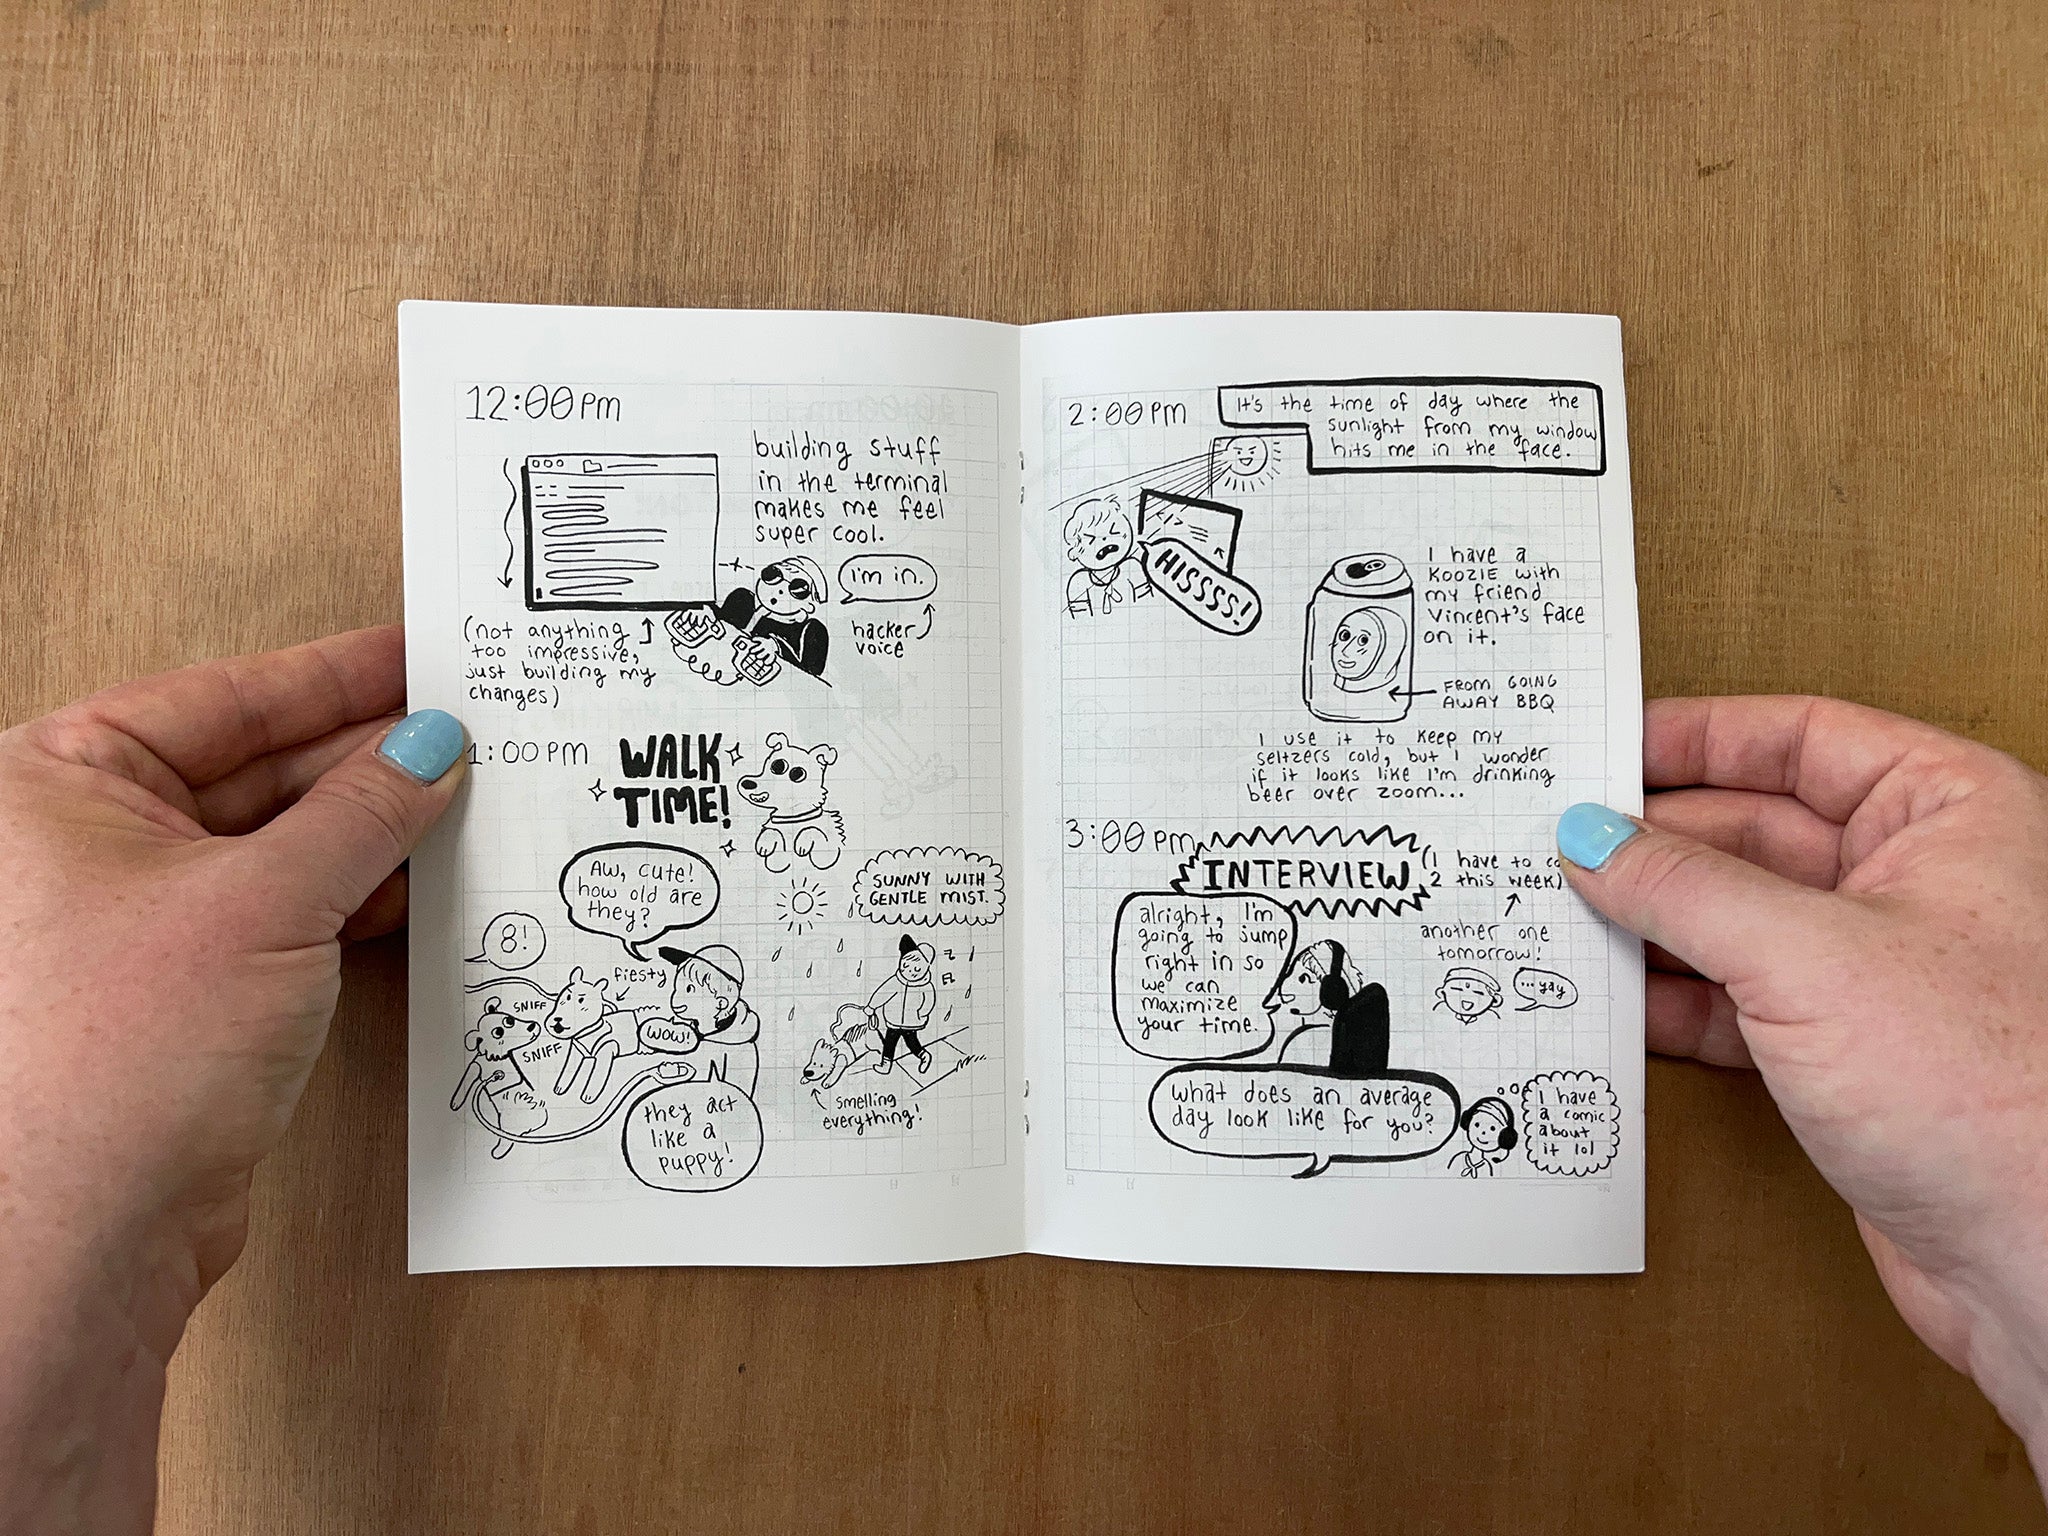 12:00 PM
building stuff
in the terminal
makes me feel
super cool.
I'm in.
hacker
voice
(not anything
too impressive,
just building my
changes)
1:00 PM
WALK
TIME!
Aw, cute!
how old are
they?
8!
SNIFF
SNIFF
fiesty
WOW!
they act
like a
puppy!
SUNNY WITH
GENTLE MIST.
smelling
everything!
2:00 PM
It's the time of day where the
sunlight from my window
hits me in the face.
HISSSS!
I have a
KOOZIE with
my friend
Vincent's face
on it.
FROM GOING
AWAY BBQ
I use it to keep my
seltzers cold, but I wonder
if it looks like I'm drinking
beer over zoom...
3:00 PM
INTERVIEW
(I have to
2 this week)
another one
tomorrow!
...yay
alright, I'm
going to jump
right in so
we can
maximize
your time.
what does an average
day look like for you?
I have
a comic
about
it lol